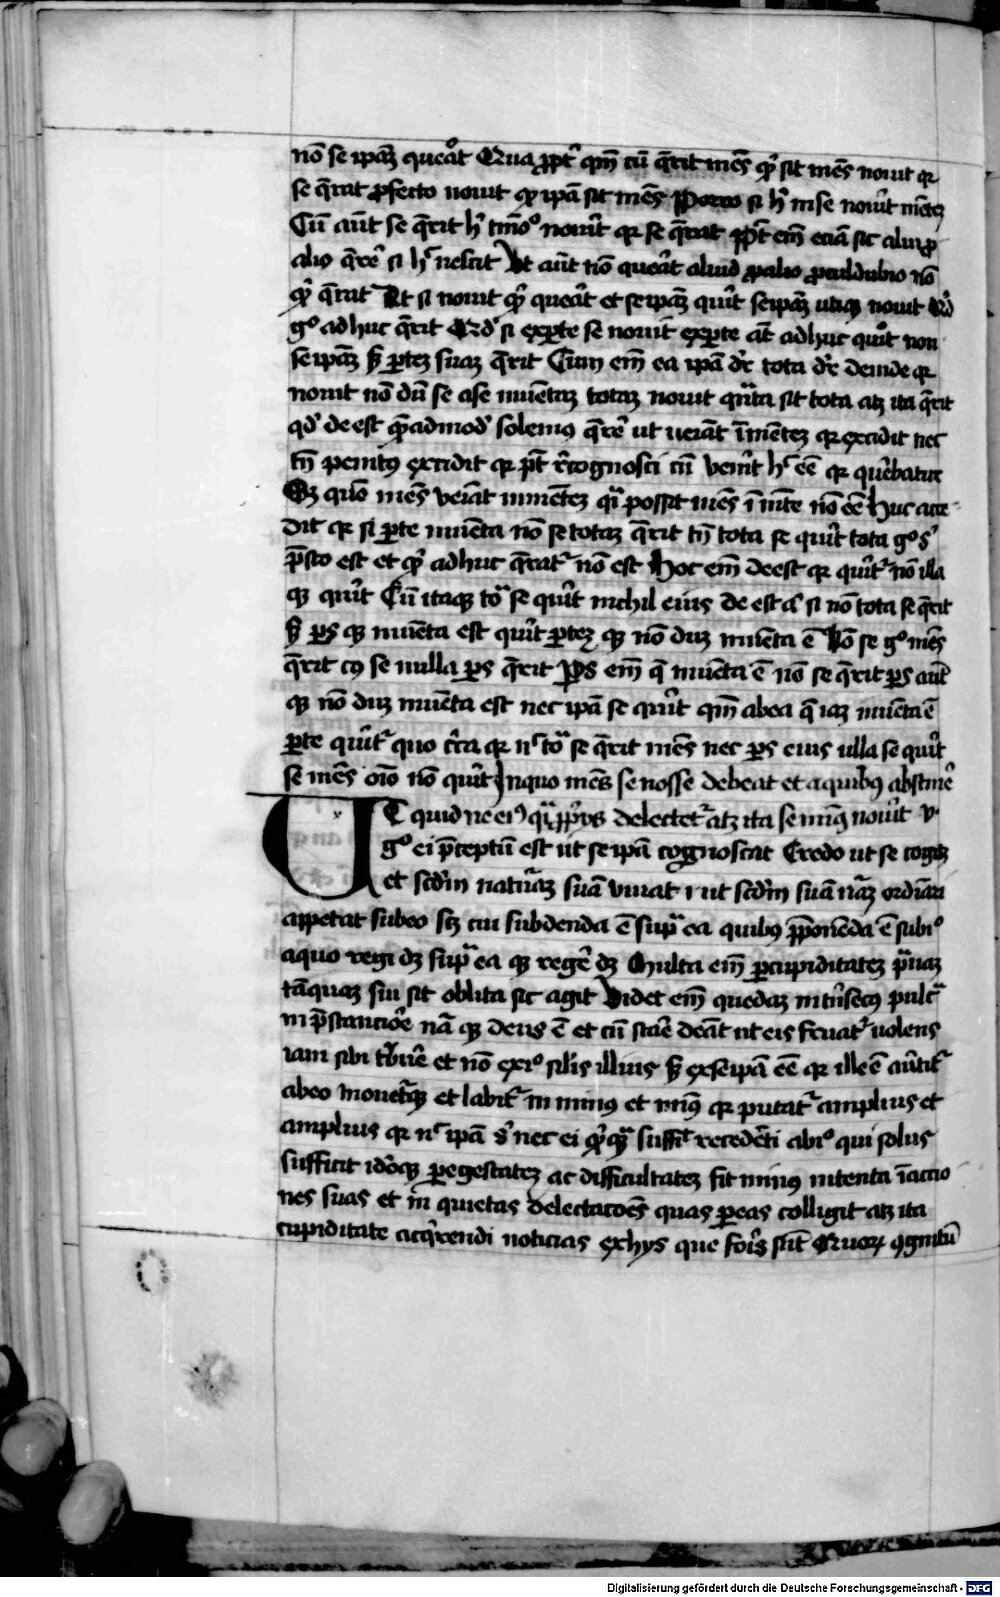 nō se ipaꝫ querat Qua ꝓpt̄ qm̄ cū q̄rit mēs qͥd sit mēs nouit qr
se q̄rat ꝓfecto nouit qͥ ipā sit mēs Porro si hͦ in se nouit mētez
Cū aūt se q̄rit hͦ tm̄o nouit qr se q̄rat pt̄ em̄ eciā sic aliuꝓ
alio q̄re si hͦ nescit Ut aūt nō querat aliud ꝓ alio ꝓculdubio nō
qͥd q̄rat At si nouit qͥd querat et seipaꝫ querit seipaꝫ utiqꝫ nouit Qͥd
gͦ adhuc q̄rit Qd' si ex ꝑte se nouit ex ꝑte aūt adhuc querit non
seipaꝫ sꝫ ꝑteꝫ suaꝫ q̄rit Cum em̄ ea ipā dr̄ tota dr̄ deinde qr
nouit nō dū se a se inuentaꝫ totaꝫ nouit quāta sit tota atqꝫ ita q̄rit
qd' deest quēadmod' solemus q̄re ut ueniat ī mēteꝫ qr excidit nec
tn̄ penitus excidit qr pt̄ recognosci cū venit hͦ eē qr querebatur
Sꝫ quō mēs veniat in menteꝫ qͣi possit mēs ī mēte nō eē Huc acce-
dit qr si ꝑte inuenta nō se totaꝫ q̄rit tn̄ tota se querit tota gͦ sͥ
p̄sto est et qͥd adhuc q̄rat̄ nō est Hoc em̄ deest qr querit̄ nō illa
que querit Cū itaqꝫ tota se querit nichil eius deest aut si nō tota se q̄rit
sꝫ ꝑs que inuenta est querit ꝑteꝫ que nō duꝫ inuenta ē Nō se gͦ mēs
q̄rit cuius se nulla ꝑs q̄rit Pars em̄ q̄ inuenta ē nō se q̄rit ꝑs aūt
que nō duꝫ inuenta est nec ipā se querit qm̄ ab ea q̄ iaꝫ inuenta ē
ꝑte querit̄ quo circa qr nͦ tota se q̄rit mēs nec ꝑs eius ulla se querit
se mēs oīo nō querit In quo mens se nosse debeat et a quibus abstine
UT quid ne eius qͣi prius delectet̄ atqꝫ ita se minus nouit v·
gͦ ei p̄ceptū est ut seipā cognoscat Credo ut se cogitꝫ
et scd'm naturaꝫ suā viuat i ut scd'm suā nāꝫ ordinari
appetat sub eo scꝫ cui subdenda ē supra ea quibus p̄ponēda ē sub ioͦ
a quo regi dꝫ supra ea que regere dꝫ Multa em̄ ꝑ cupiditateꝫ prauaꝫ
tāquaꝫ sui sit oblita sic agit Videt em̄ quedaꝫ intrisecus pulcra
in p̄stanciore nā que deus ē et cū stare debeat ut eis fruat̄ uolens
iam sibi tribuere et nō ex ioͦ silis illius sꝫ ex seipā eē qr ille ē auertit̄
ab eo mouet̄qꝫ et labit̄ in minus et minus qr putat̄ amplius et
amplius qr nͦ ipā sͥ nec ei qͥdqͣ sufficit recedēti ab ioͦ qui solus
sufficit idōqꝫ ꝑ egestateꝫ ac difficultateꝫ fit nimis intenta ī accio
nes suas et in quietas delectacōes quas ꝑ eas colligit atqꝫ ita
cupiditate acq̄rendi noticias ex hys que foris sūt Quoꝝ ꝯgnitū
Digitalisierung gefördert durch die Deutsche Forschungsgemeinschaft - DFG